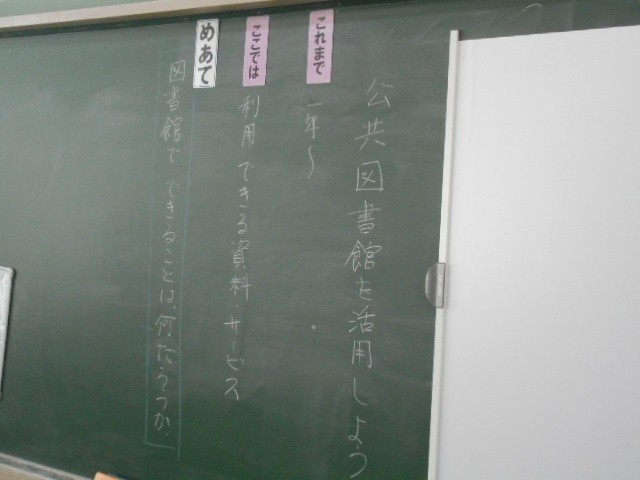 公共図書館を活用しよう
これまで
一年〜
ここでは
利用できる資料・サービス
めあて
図書館でできることは、何だろうか。